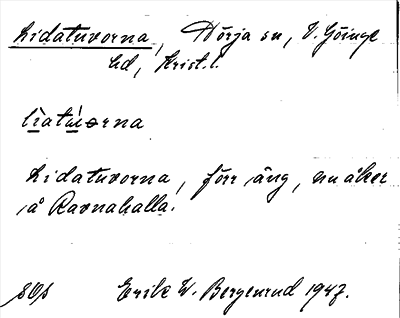 Lidatuvorna, Dörja sn, V. Göinge
hd, Krist. l.
lìatúorna
Lidatuvorna, förr äng, nu åker
å Ravnahalla.
Erik W. Bergenrud 1947.